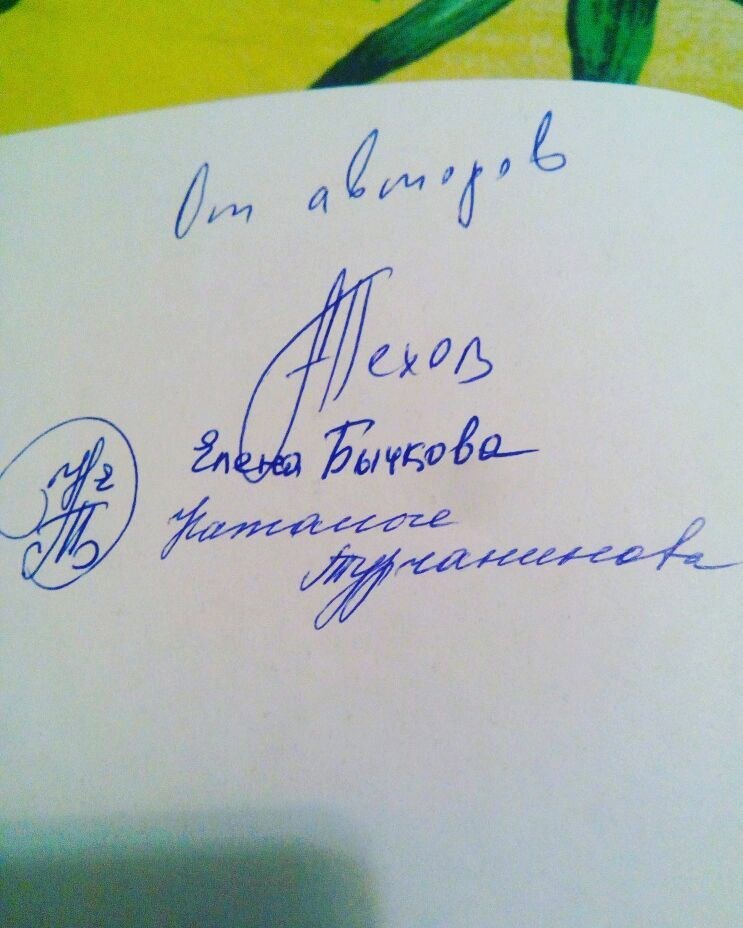 От авторов
Пехов
Елена Бычкова
Наталье
Турчанинова